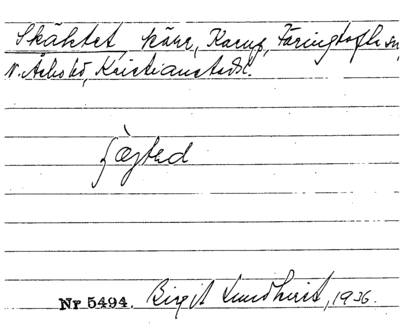 Skäktet, kärr, Karup, Färingtofta sn,
N. Åsbo hd, Kristianstads l.
Jagtad
Nr 5494. Birgit Lundhvist, 1936.